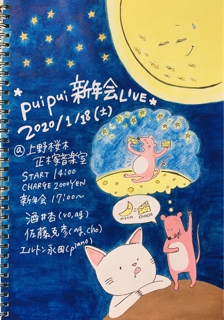 puipui 新年会 LIVE
2020/1/18(土)
@上野桜木
正木音楽室
START 14:00
CHARGE 2000YEN
新年会 17:00〜
酒井杏(vo,ag)
佐藤克彦(ag,cho)
エルトン永田(piano)